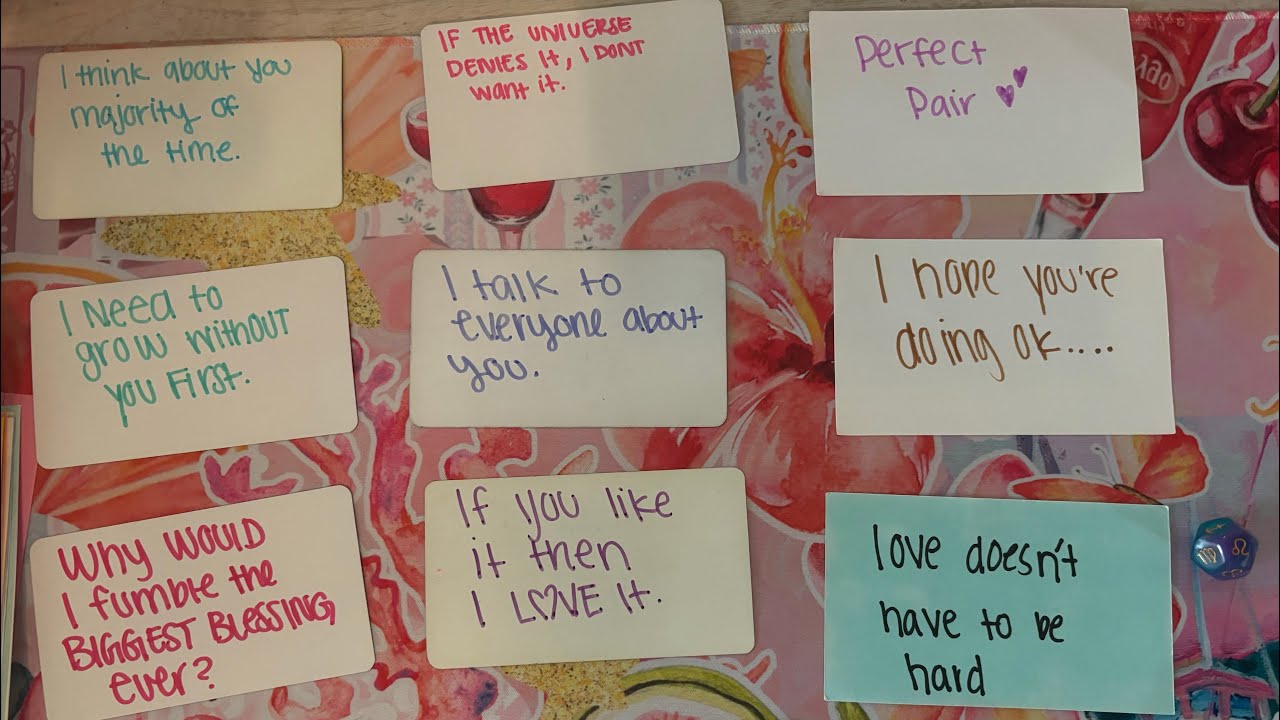 I think about you
majority of
the time.
IF THE UNIVERSE
DENIES It, I DONT
want it.
Perfect
Pair
I Need to
grow without
you First.
I talk to
everyone about
you.
I hope you're
doing ok....
Why WOULD
I fumble the
BIGGEST BLESSING
ever?
If you like
it then
I LOVE It.
love doesn't
have to be
hard